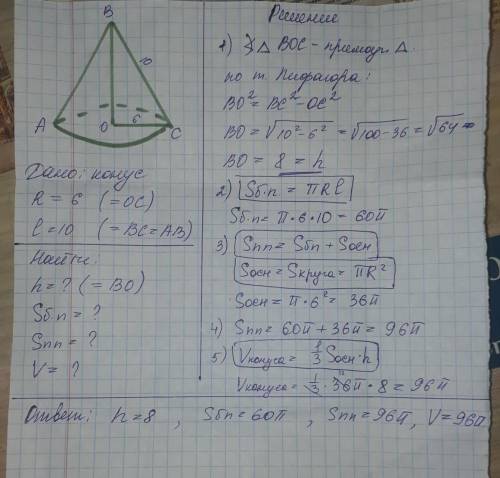 B
10
A
O
6
C
Дано: конус
R = 6 (=OC)
l = 10 (=BC=AB)
Найти:
h = ? (=BO)
Sб.п = ?
Sпп = ?
V = ?
Решение
1) △ BOC - прямоуг △.
по т. Пифагора:
BO² = BC² - OC²
BO = √10² - 6² = √100 - 36 = √64 =
BO = 8 = h
2) Sб.п = πRl
Sб.п = π·6·10 = 60π
3) Sпп = Sбп + Sосн
Sосн = Sкруга = πR²
Sосн = π·6² = 36π
4) Sпп = 60π + 36π = 96π
5) Vконуса = 1/3 Sосн·h
Vконуса = 1/3 · 36π · 8 = 96π
Ответ: h = 8 , Sбп = 60π , Sпп = 96π, V = 96π